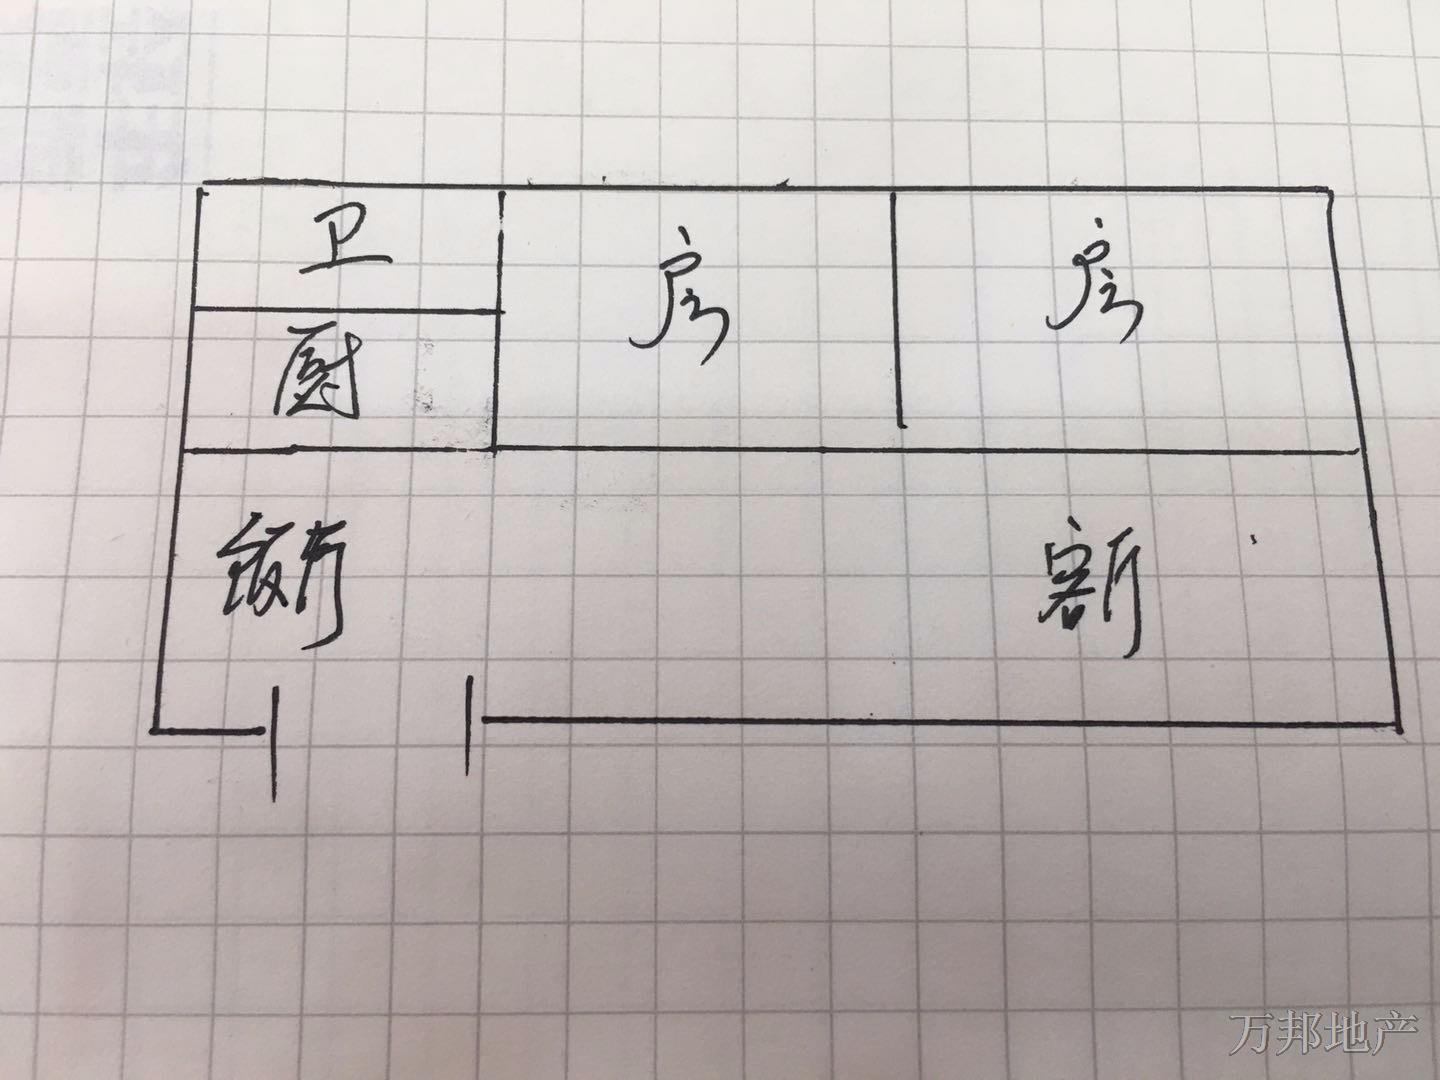 卫
房
房
厨
飯厅
客厅
万邦地产